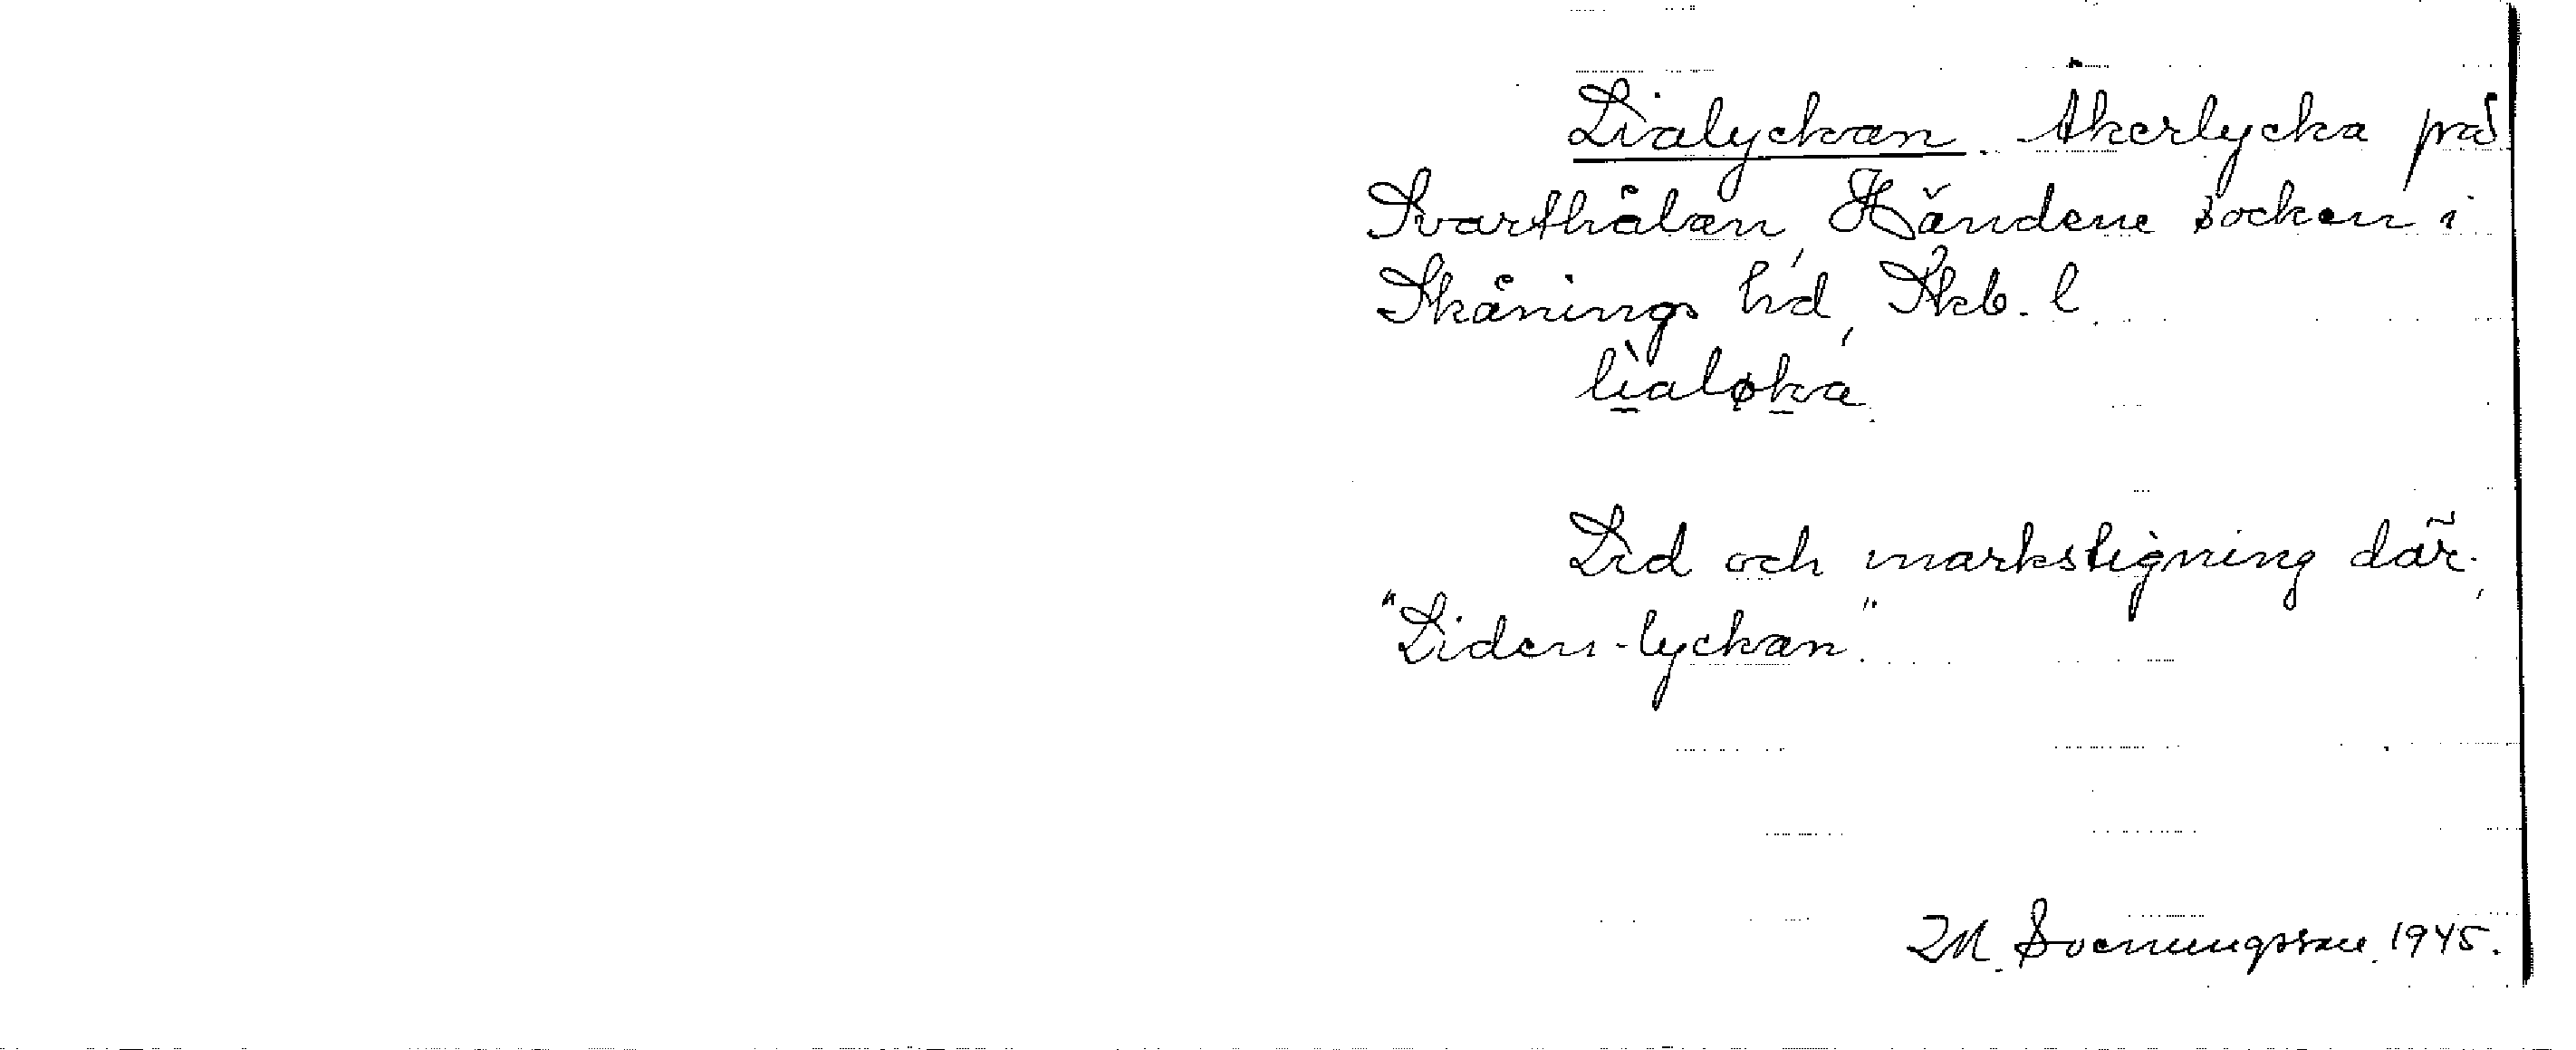 Lialyckan. Åkerlycka på
Svarthålan, Händene socken i
Skånings hd, Skb. l.
lìaløka.
Lid och markstigning där,
"Liden-lyckan".
M. Svenungsson 1945.